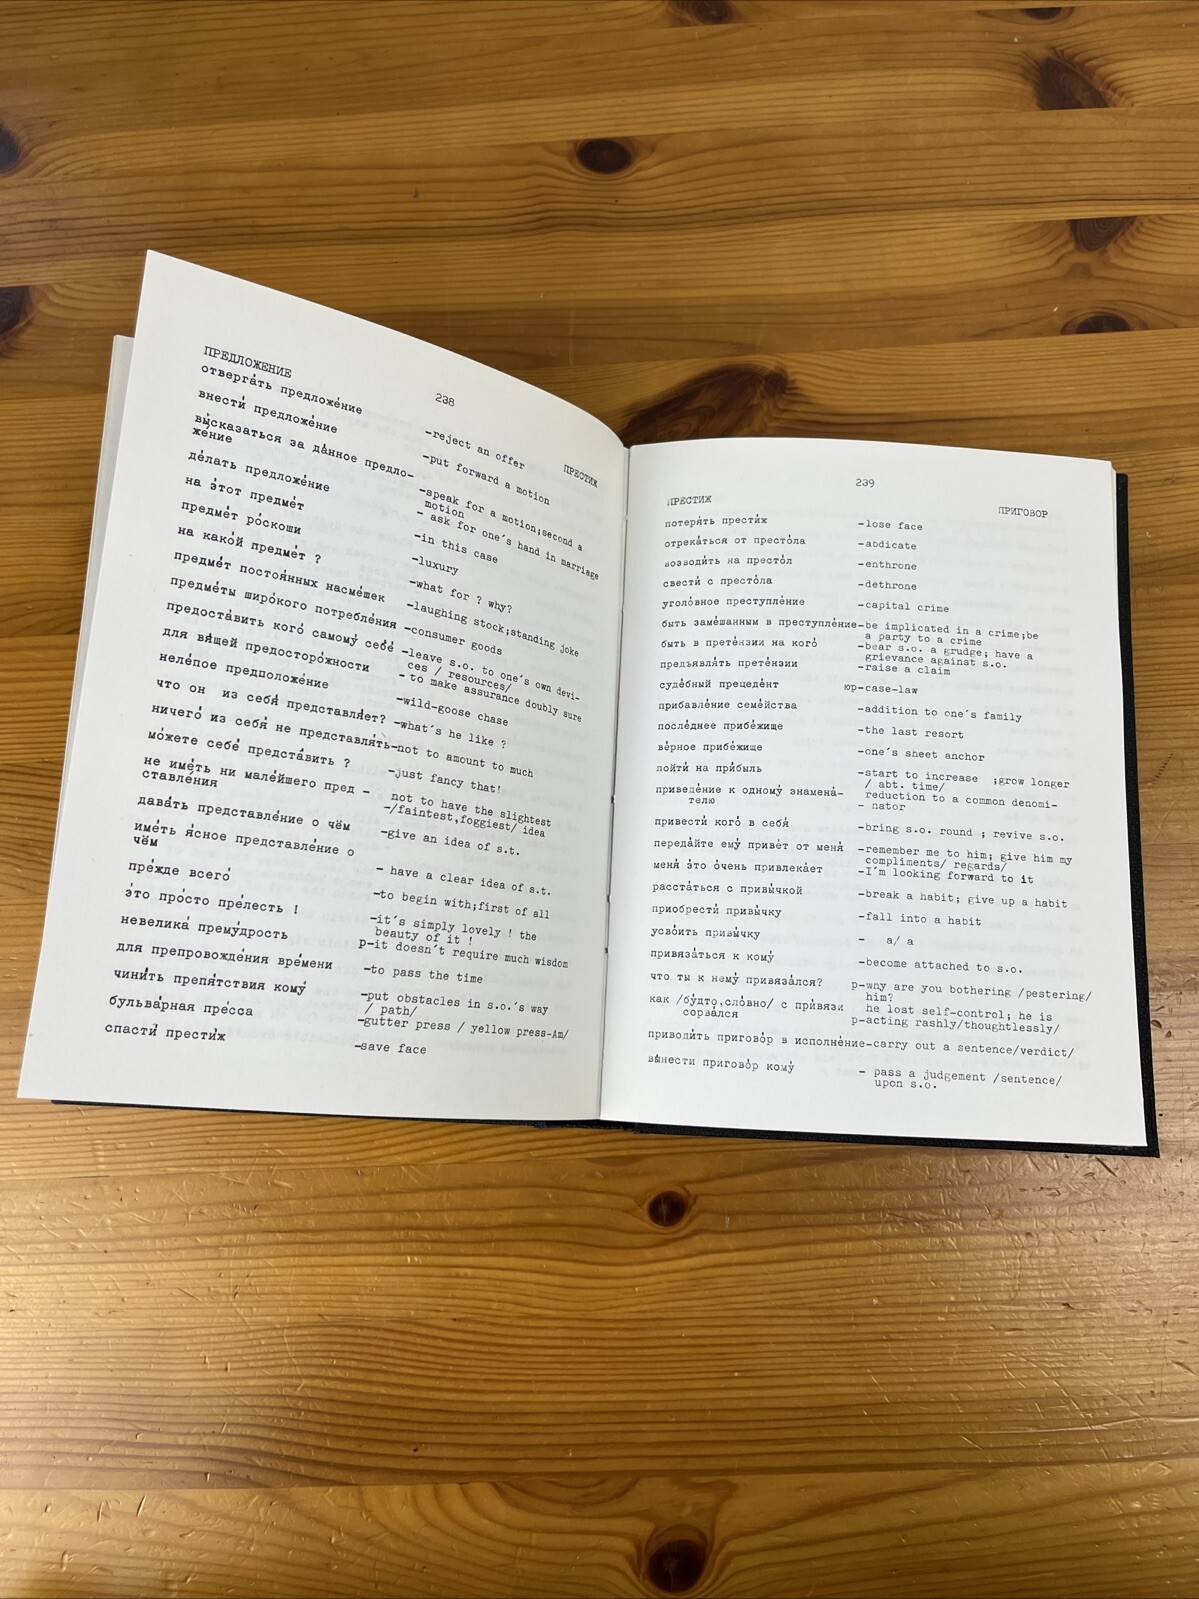 ПРЕДЛОЖЕНИЕ 238 ПРЕСТИЖ
отверга́ть предложе́ние -reject an offer
внести́ предложе́ние -put forward a motion
вы́сказаться за да́нное предло- -speak for a motion;second a
же́ние motion
де́лать предложе́ние - ask for one's hand in marriage
на э́тот предме́т -in this case
предме́т ро́скоши -luxury
на како́й предме́т ? -what for ? why?
предме́т постоя́нных насме́шек -laughing stock;standing joke
предме́ты широ́кого потребле́ния -consumer goods
предоста́вить кого́ самому́ себе́ -leave s.o. to one's own devi-
ces / resources/
для вя́щей предосторо́жности - to make assurance doubly sure
неле́пое предположе́ние -wild-goose chase
что он из себя́ представля́ет? -what's he like ?
ничего́ из себя́ не представля́ть-not to amount to much
мо́жете себе́ предста́вить ? -just fancy that!
не име́ть ни мале́йшего пред - not to have the slightest
ставле́ния -/faintest,foggiest/ idea
дава́ть представле́ние о чём -give an idea of s.t.
име́ть я́сное представле́ние о
чём - have a clear idea of s.t.
пре́жде всего́ -to begin with;first of all
э́то про́сто пре́лесть ! -it's simply lovely ! the
beauty of it !
невелика́ прему́дрость р-it doesn't require much wisdom
для препровожде́ния вре́мени -to pass the time
чини́ть препя́тствия кому́ -put obstacles in s.o.'s way
/ path/
бульва́рная пре́сса -gutter press / yellow press-Am/
спасти́ прести́ж -save face
239
ПРЕСТИЖ ПРИГОВОР
потеря́ть прести́ж -lose face
отрека́ться от престо́ла -abdicate
возводи́ть на престо́л -enthrone
свести́ с престо́ла -dethrone
уголо́вное преступле́ние -capital crime
быть заме́шанным в преступле́ние-be implicated in a crime;be
a party to a crime
быть в прете́нзии на кого́ -bear s.o. a grudge; have a
grievance against s.o.
предъявля́ть прете́нзии -raise a claim
суде́бный прецеде́нт юр-case-law
прибавле́ние семе́йства -addition to one's family
после́днее прибе́жище -the last resort
ве́рное прибе́жище -one's sheet anchor
пойти́ на при́быль -start to increase ;grow longer
/ abt. time/
приведе́ние к одному́ знамена́- reduction to a common denomi-
телю - nator
привести́ кого́ в себя́ -bring s.o. round ; revive s.o.
переда́йте ему́ приве́т от меня́ -remember me to him; give him my
compliments/ regards/
меня́ э́то о́чень привлека́ет -I'm looking forward to it
расста́ться с привы́чкой -break a habit; give up a habit
приобрести́ привы́чку -fall into a habit
усво́ить привы́чку - a/ a
привяза́ться к кому́ -become attached to s.o.
что ты к нему́ привяза́лся? р-wny are you bothering /pestering/
him?
как /бу́дто,сло́вно/ с при́вязи he lost self-control; he is
сорва́лся р-acting rashly/thoughtlessly/
приводи́ть пригово́р в исполне́ние-carry out a sentence/verdict/
вы́нести пригово́р кому́ - pass a judgement /sentence/
upon s.o.